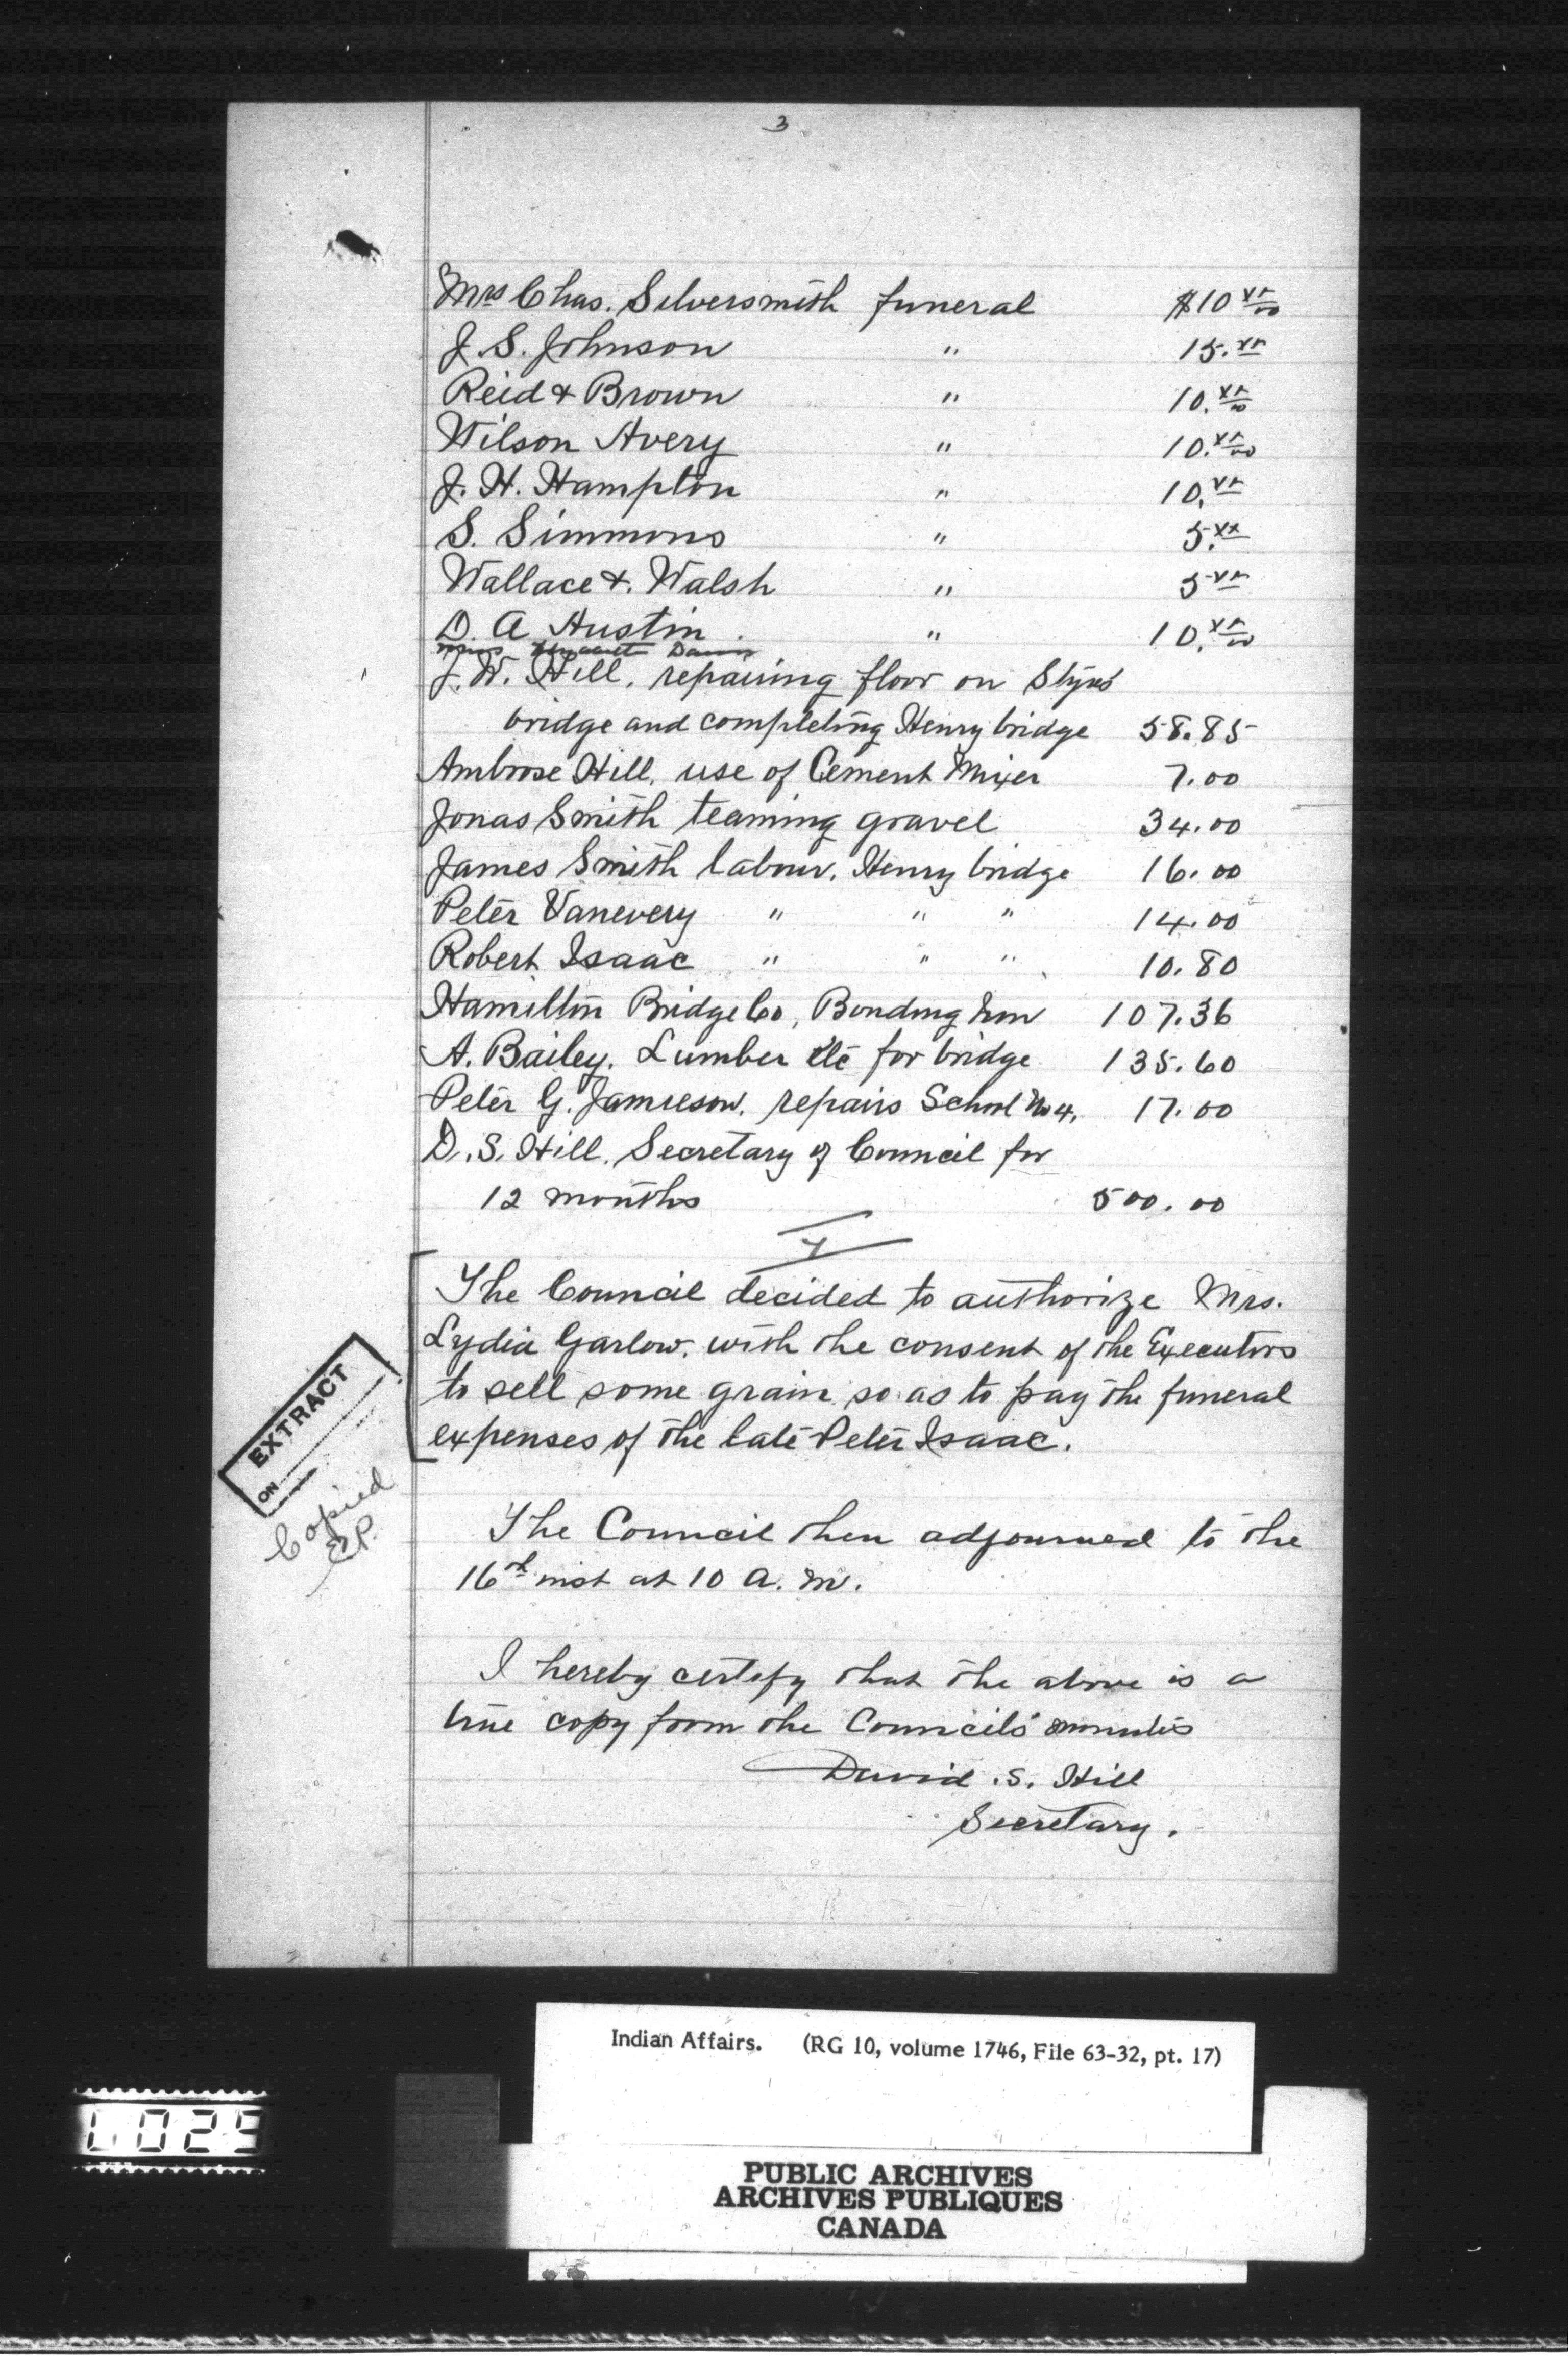 3
Mrs Chas. Silversmith funeral $10 xx/00
J. S. Johnson " 15. xx
Reid & Brown " 10. xx/00
Wilson Avery " 10. xx/00
J. H. Hampton " 10. xx
S. Simmons " 5. xx
Wallace & Walsh " 5 xx
D. A Austin " 10. xx/00
J. W. Hill, repairing floor on
bridge and completing Henry bridge 58.85
Ambrose Hill, use of Cement Mixer 7.00
Jonas Smith teaming gravel 34.00
James Smith labour, Henry bridge 16.00
Peter Vanevery " " " 14.00
Robert Isaac " " " 10.80
Hamilton Bridge Co, Bonding Iron 107.36
A. Bailey. Lumber etc for bridge 135.60
Peter G. Jamieson, repairs School No 4. 17.00
D. S. Hill, Secretary of Council for
12 months 500.00
The Council decided to authorize Mrs.
Lydia Garlow, with the consent of the Executors
to sell some grain so as to pay the funeral
expenses of the late Peter Isaac.
EXTRACT
ON
Copied
E.P.
The Council then adjourned to the
16th inst at 10 A. M.
I hereby certify that the above is a
true copy from the Council's minutes
David S. Hill
Secretary.
Indian Affairs. (RG 10, volume 1746, File 63-32, pt. 17)
L 025
PUBLIC ARCHIVES
ARCHIVES PUBLIQUES
CANADA